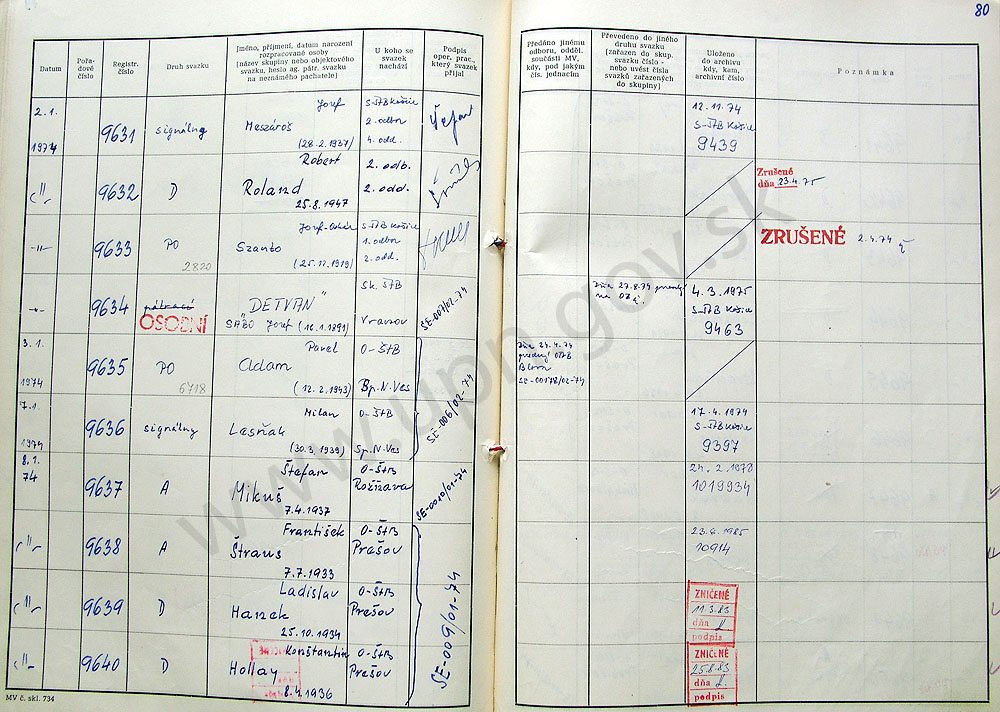 80
Datum
Pořa-
dové
číslo
Registr.
číslo
Druh svazku
Jméno, příjmení, datum narození
rozpracované osoby
(název skupiny nebo objektového
svazku, heslo ag. pátr. svazku
na neznámého pachatele)
U koho se
svazek
nachází
Podpis
oper. prac.,
který svazek
přijal
Předáno jinému
odboru, odděl.
součásti MV,
kdy, pod jakým
čís. jednacím
Převedeno do jiného
druhu svazku
(zařazen do skup.
svazku číslo -
nebo uvést čísla
svazků zařazených
do skupiny)
Uloženo
do archivu
kdy, kam,
archivní číslo
Poznámka
2.1.
1974
9631
signálny
Jozef
Meszároš
(28.2.1937)
S-ŠtB Košice
2. odbor
4. odd.
12.11.74
S-ŠtB Košice
9439
-"-
9632
D
Robert
Roland
25.8.1947
2. odb.
2. odd.
Zrušené
dňa 23.4.75
-"-
9633
PO
2820
Szanto
(25.12.1919)
S-ŠtB Košice
1. odbor
2. odd.
ZRUŠENÉ
2.4.74
-"-
9634
pátrací
OSOBNÍ
"DETVAN"
SABO Jozef (16.1.1891)
Sk. ŠtB
Vranov
SE-007/02-74
4.3.1975
S-ŠtB Košice
9463
3.1.
1974
9635
PO
6718
Pavel
Adam
(12.2.1943)
O-ŠtB
Sp.N.Ves
SE-006/02-74
SE-00178/02-74
7.1.
1974
9636
signálny
Milan
Lesňak
(30.3.1939)
O-ŠtB
Sp.N-Ves
17.4.1974
S-ŠtB Košice
9397
8.1.
74
9637
A
Štefan
Mikuš
7.4.1937
O-ŠtB
Rožňava
SE-0010/01-74
24.2.1978
1019934
-"-
9638
A
František
Štraus
7.7.1933
O-ŠtB
Prešov
SE-009/01-74
23.6.1985
10914
-"-
9639
D
Ladislav
Hanek
25.10.1934
O-ŠtB
Prešov
ZNIČENÉ
11.3.83
dňa
podpis
-"-
9640
D
Konstantin
Hollay
8.4.1936
O-ŠtB
Prešov
ZNIČENÉ
25.8.83
dňa
podpis
MV č. skl. 734
www.upn.gov.sk